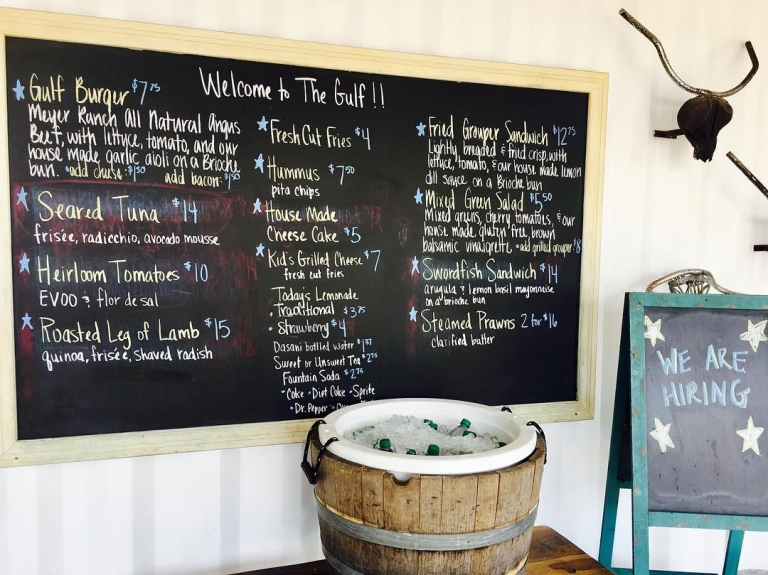 Welcome to The Gulf!!
Gulf Burger $7.75
Meyer Ranch All Natural Angus
Beef, with lettuce, tomato, and our
house made garlic aioli on a Brioche
bun. *add cheese $1.50 add bacon $1.50
Seared Tuna $14
frisée, radicchio, avocado mousse
Heirloom Tomatoes $10
EVOO & flor de sal
Roasted Leg of Lamb $15
quinoa, frisée, shaved radish
Fresh Cut Fries $4
Hummus $7.50
pita chips
House Made
Cheese Cake $5
Kid's Grilled Cheese $7
fresh cut fries
Today's Lemonade
• Traditional $3.75
• Strawberry $4
Dasani bottled water
Sweet or Unsweet Tea $2.75
Fountain Soda $2.75
• Coke • Diet Coke • Sprite
• Dr. Pepper
Fried Grouper Sandwich $12.75
Lightly breaded & fried crisp, with
lettuce, tomato, & our house made lemon
dill sauce on a Brioche bun
Mixed Green Salad $5.50
Mixed greens, cherry tomatoes, & our
house made gluten free, brown
balsamic vinaigrette. *add grilled grouper $8
Swordfish Sandwich $14
arugula & lemon basil mayonnaise
on a brioche bun
Steamed Prawns 2 for $16
clarified butter
WE ARE
HIRING